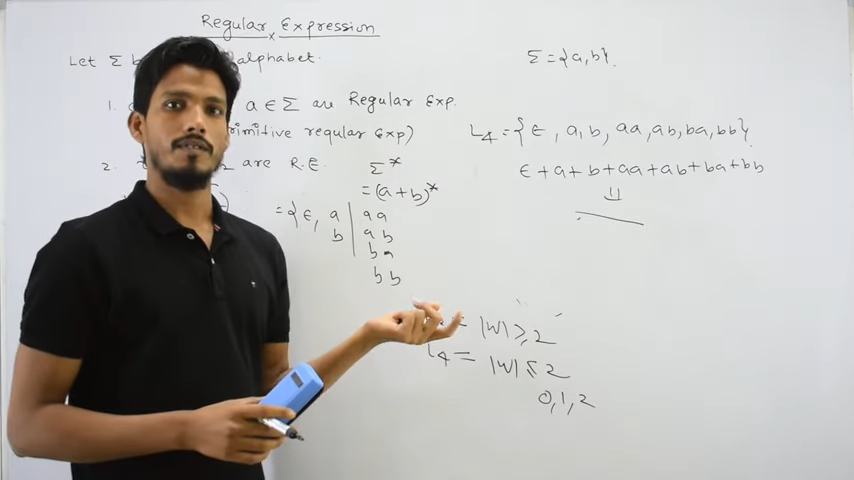 Regular Expression
Let Σ b alphabet.
Σ = {a, b}.
1. a ∈ Σ are Regular Exp.
rimitive regular Exp)
L4 = {ε, a, b, aa, ab, ba, bb}.
2. are R.E.
Σ*
= (a+b)*
ε + a + b + aa + ab + ba + bb
= {ε, a | aa
b | ab
ba
bb
= |W| ≥ 2
L4 = |W| ≤ 2
0, 1, 2